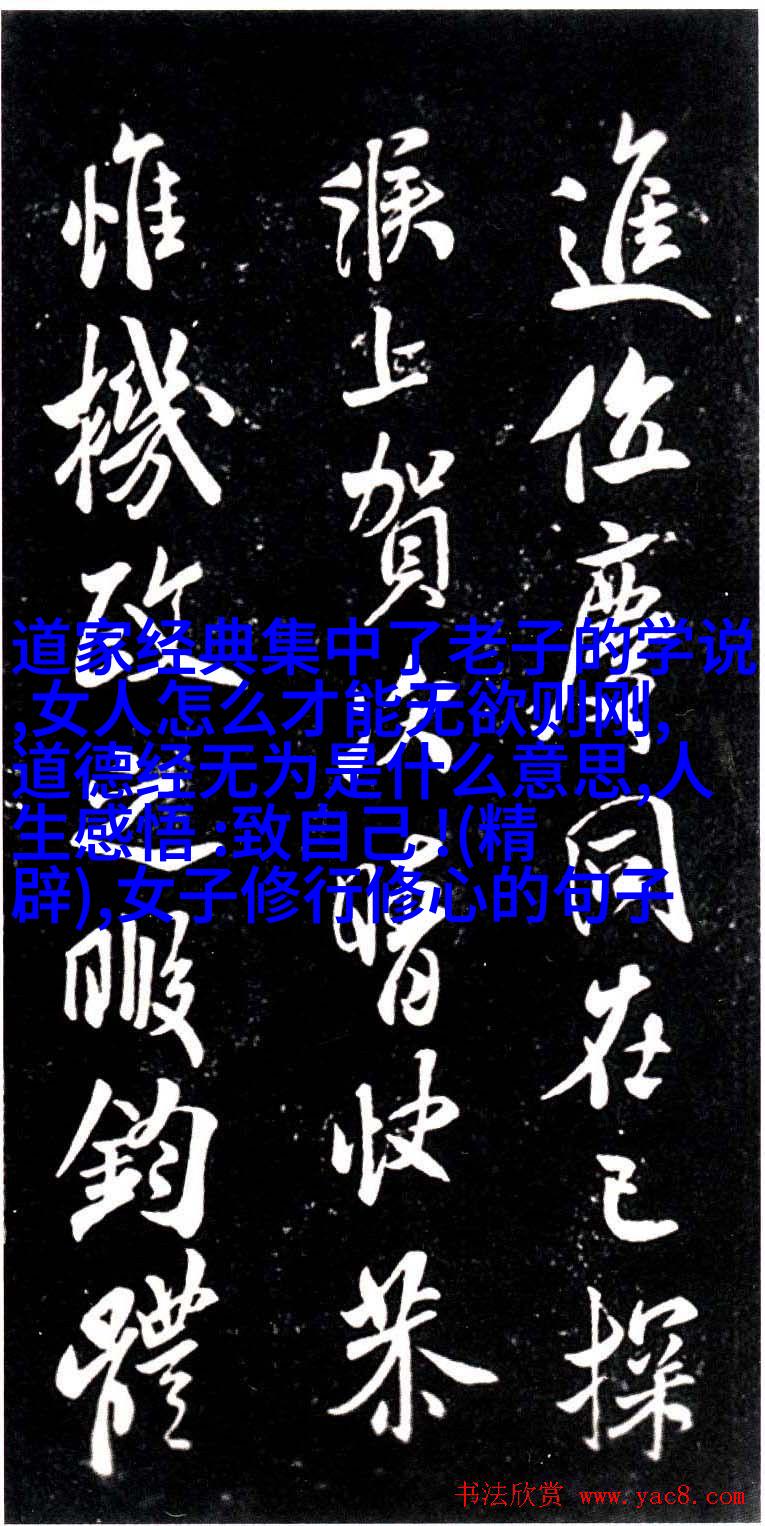 進位慶同在已探
候上賀次晴快恭
惟機政之暇鈞體
道家经典集中了老子的学说
,女人怎么才能无欲则刚,
道德经无为是什么意思,人
生感悟 :致自己 !(精
辟),女子修行修心的句子
书法欣赏 www.yac8.com